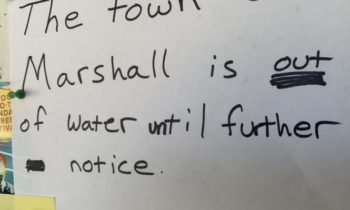 The town
Marshall is out
of water until further
notice.